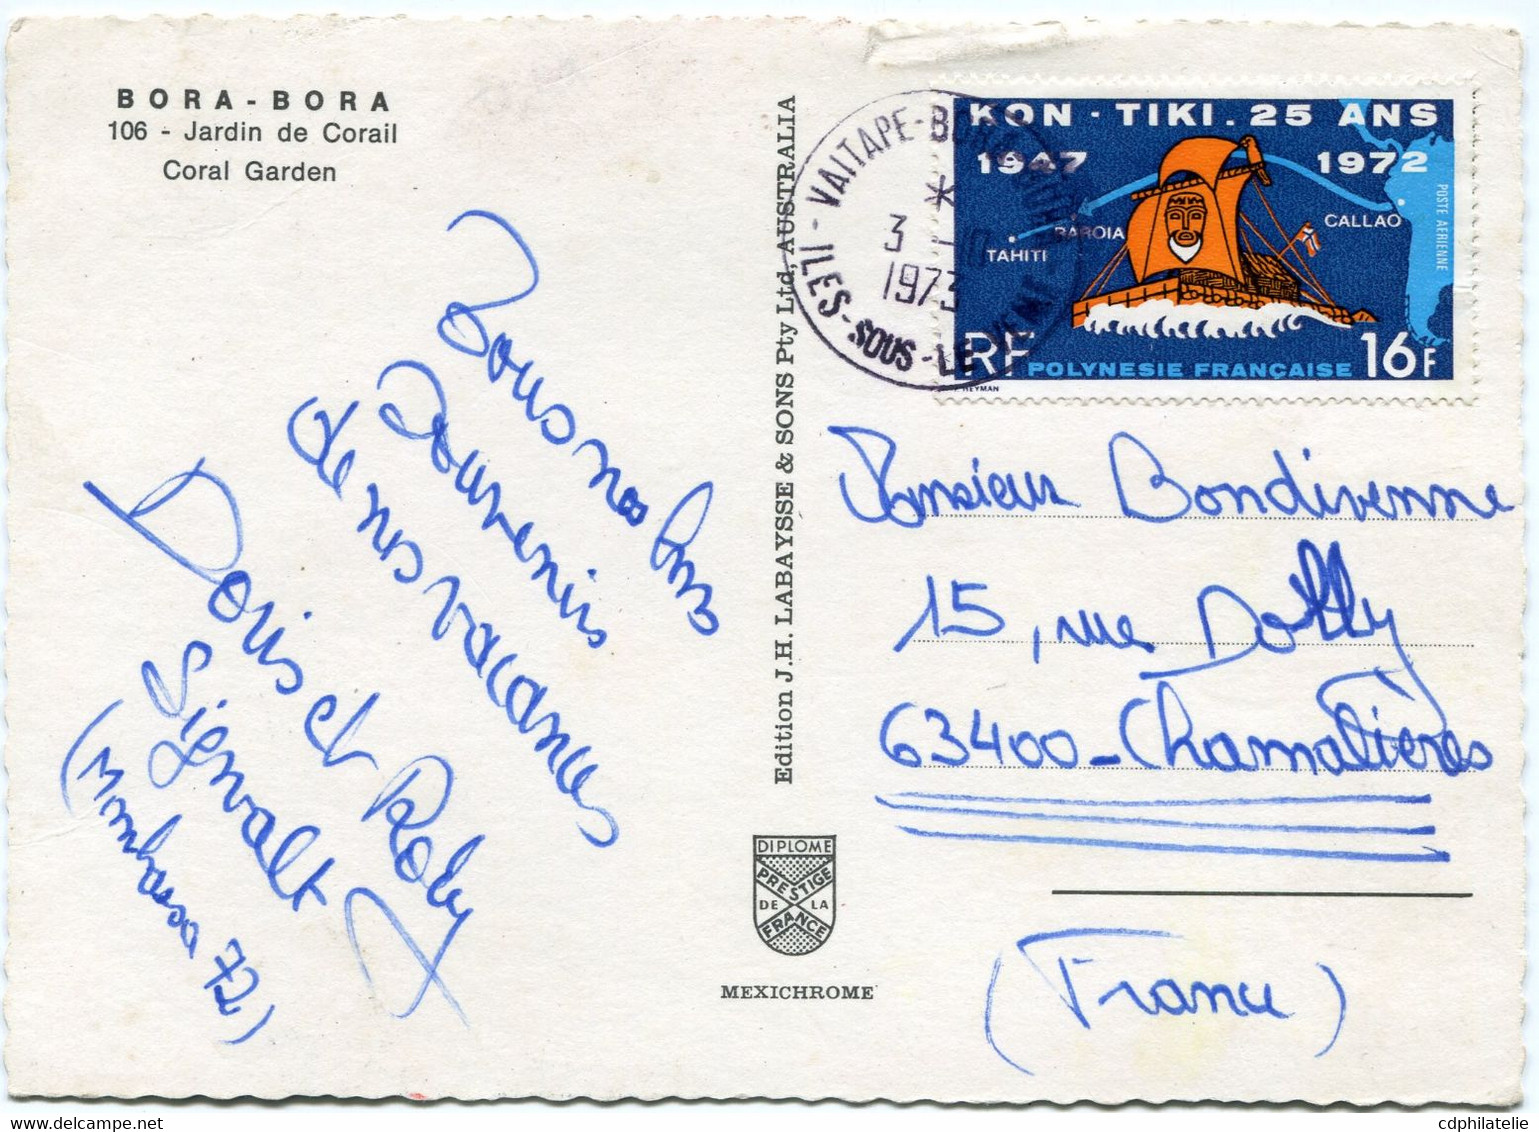 BORA-BORA
106 - Jardin de Corail
Coral Garden
Tous nos bons
souvenirs
de nos vacances
Doris et Roby
Sigwalt
Edition J.H. LABAYSSE & SONS Pty Ltd, AUSTRALIA
DIPLOME
PRESTIGE
DE LA
FRANCE
MEXICHROME
VAITAPE-BORA-BORA
ILES-SOUS-LE-VENT
*
3 -10
1973
KON - TIKI . 25 ANS
1947 1972
CALLAO
RAROIA
TAHITI
POSTE AERIENNE
RF POLYNESIE FRANÇAISE 16F
HEYMAN
Monsieur Bondivenne
15, rue Dolly
63400 - Chamalières
(France)
cdphilatelie